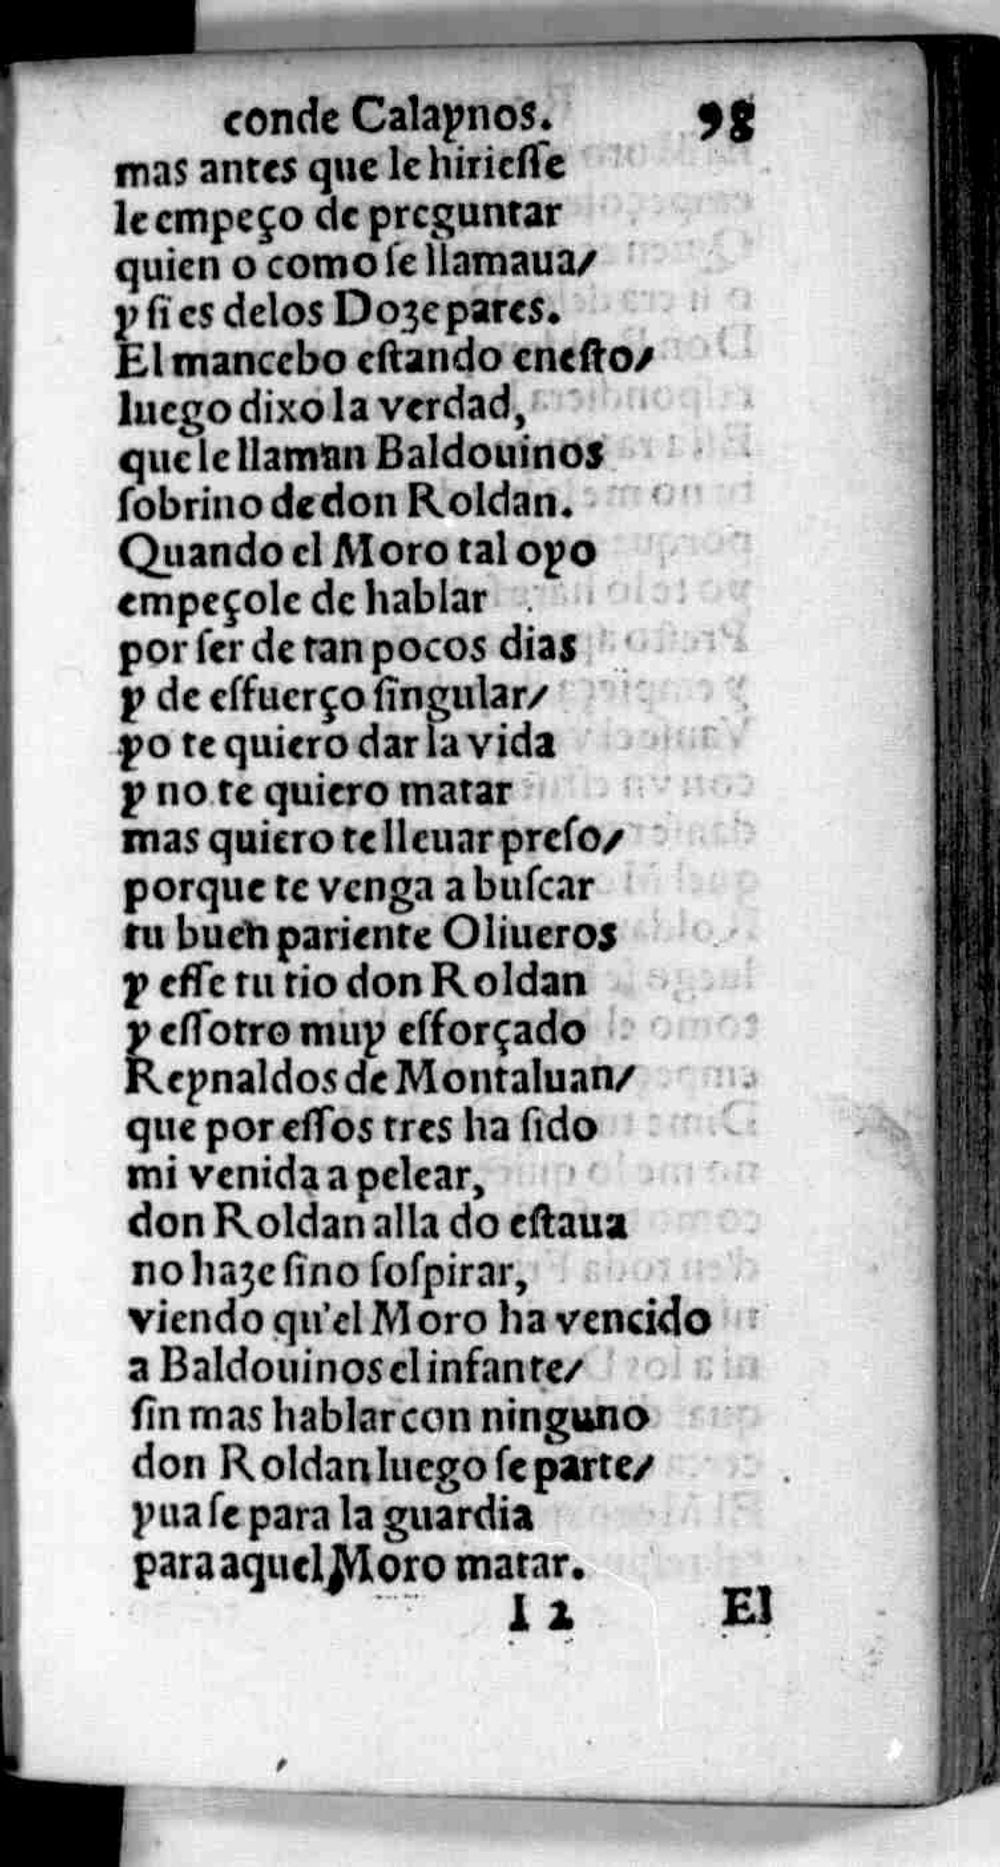 conde Calaynos. 98
mas antes que le hirieſſe
le empeço de preguntar
quien o como ſe llamaua/
y ſi es delos Dozepares.
El mancebo eſtando eneſto/
luego dixo la verdad,
que le llaman Baldouinos
ſobrino de don Roldan.
Quando el Moro tal oyo
empeçole de hablar
por ſer de tan pocos dias
y de eſfuerço ſingular/
yo te quiero dar la vida
y no te quiero matar
mas quiero te lleuar preſo/
porque te venga a buſcar
tu buen pariente Oliueros
y eſſe tu tio don Roldan
y eſſotro muy eſforçado
Reynaldos de Montaluan/
que por eſſos tres ha ſido
mi venida a pelear,
don Roldan alla do eſtaua
no haze ſino ſoſpirar,
viendo qu'el Moro ha vencido
a Baldouinos el infante/
ſin mas hablar con ninguno
don Roldan luego ſe parte/
yua ſe para la guardia
para aquel Moro matar.
I 2 El